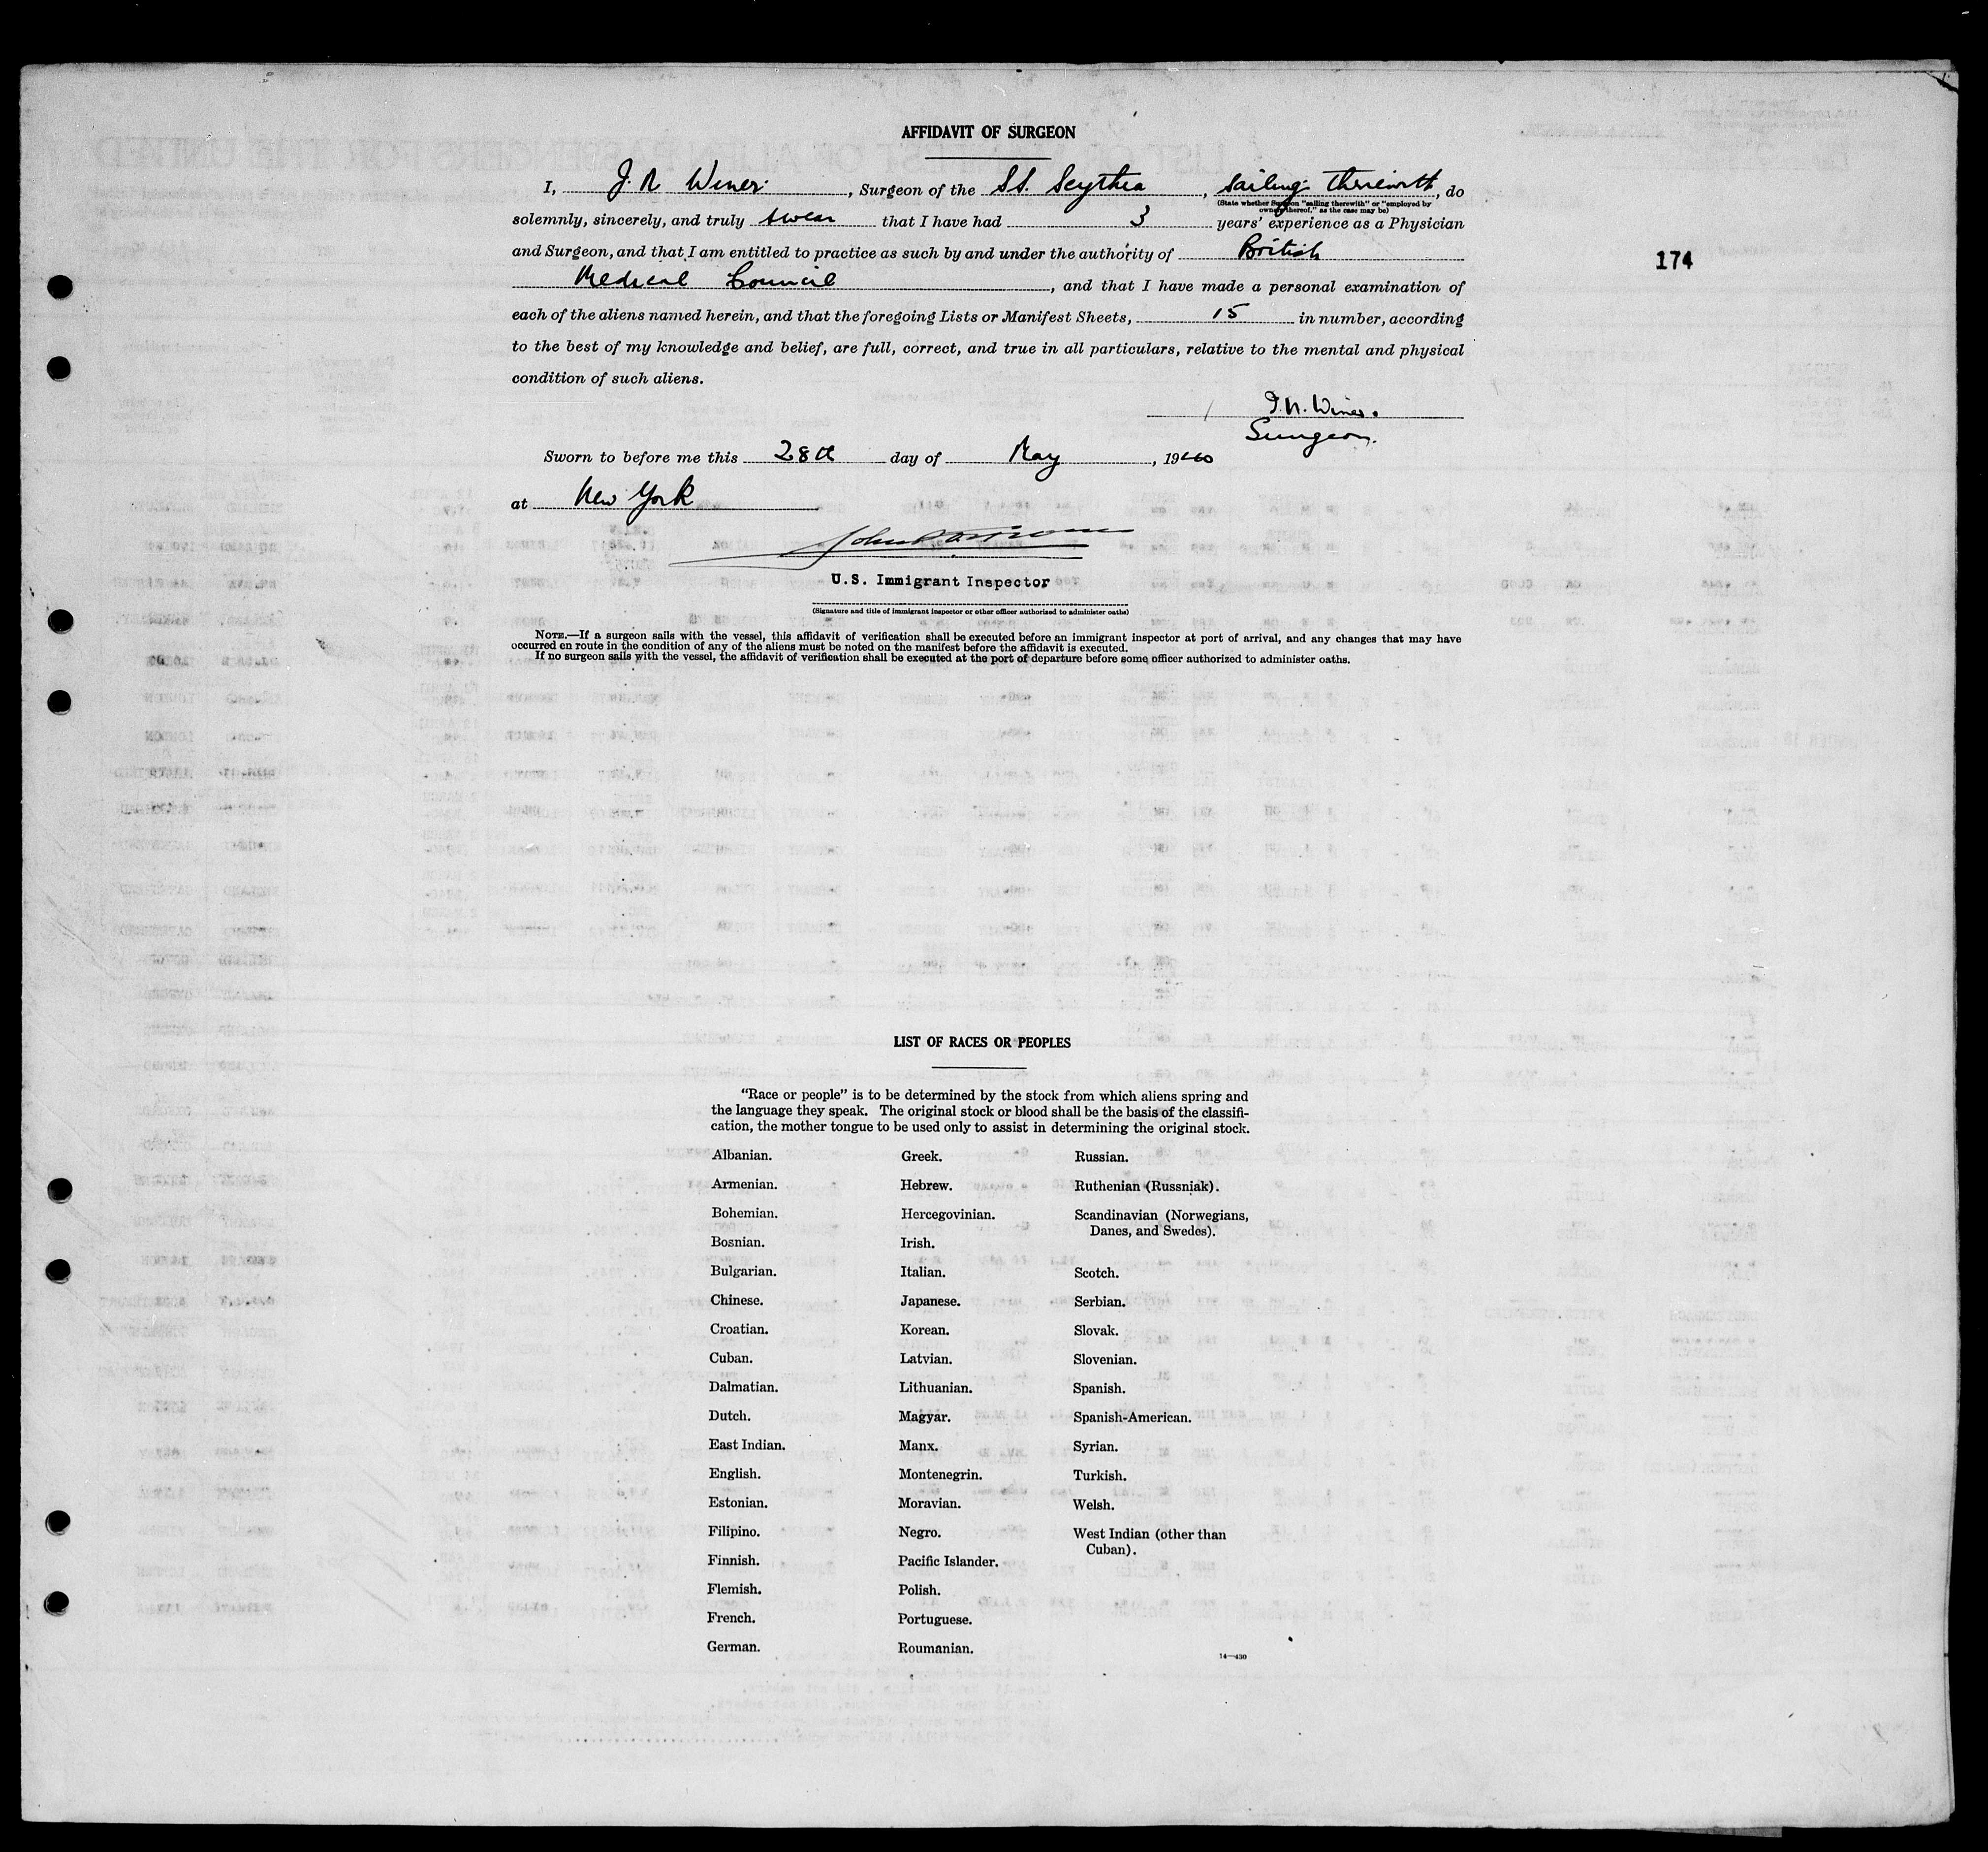 AFFIDAVIT OF SURGEON
I, J. N Winer, Surgeon of the S.S. Scythia, sailing therewith, do
(State whether Surgeon "sailing therewith" or "employed by
owner thereof," as the case may be)
solemnly, sincerely, and truly swear that I have had 3 years' experience as a Physician
and Surgeon, and that I am entitled to practice as such by and under the authority of British
Medical Council, and that I have made a personal examination of
174
each of the aliens named herein, and that the foregoing Lists or Manifest Sheets, 15 in number, according
to the best of my knowledge and belief, are full, correct, and true in all particulars, relative to the mental and physical
condition of such aliens.
J. N. Winer.
Surgeon.
Sworn to before me this 28th day of May, 1940
at New York
U.S. Immigrant Inspector
(Signature and title of immigrant inspector or other officer authorized to administer oaths)
NOTE.—If a surgeon sails with the vessel, this affidavit of verification shall be executed before an immigrant inspector at port of arrival, and any changes that may have
occurred en route in the condition of any of the aliens must be noted on the manifest before the affidavit is executed.
If no surgeon sails with the vessel, the affidavit of verification shall be executed at the port of departure before some officer authorized to administer oaths.
LIST OF RACES OR PEOPLES
"Race or people" is to be determined by the stock from which aliens spring and
the language they speak. The original stock or blood shall be the basis of the classifi-
cation, the mother tongue to be used only to assist in determining the original stock.
Albanian.
Armenian.
Bohemian.
Bosnian.
Bulgarian.
Chinese.
Croatian.
Cuban.
Dalmatian.
Dutch.
East Indian.
English.
Estonian.
Filipino.
Finnish.
Flemish.
French.
German.
Greek.
Hebrew.
Hercegovinian.
Irish.
Italian.
Japanese.
Korean.
Latvian.
Lithuanian.
Magyar.
Manx.
Montenegrin.
Moravian.
Negro.
Pacific Islander.
Polish.
Portuguese.
Roumanian.
Russian.
Ruthenian (Russniak).
Scandinavian (Norwegians,
Danes, and Swedes).
Scotch.
Serbian.
Slovak.
Slovenian.
Spanish.
Spanish-American.
Syrian.
Turkish.
Welsh.
West Indian (other than
Cuban).
14—430